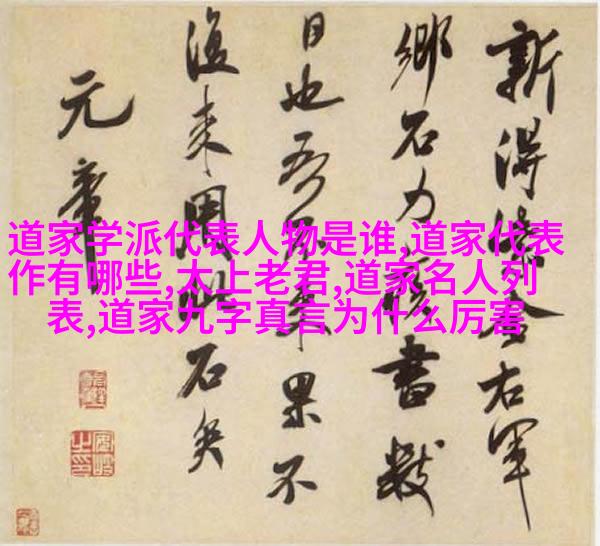 道家学派代表人物是谁,道家代表
作有哪些,太上老君,道家名人列
表,道家九字真言为什么厉害
新得紫金右軍
鄉石力疾書數
日也吾不来果不
復来用此石矣
元章